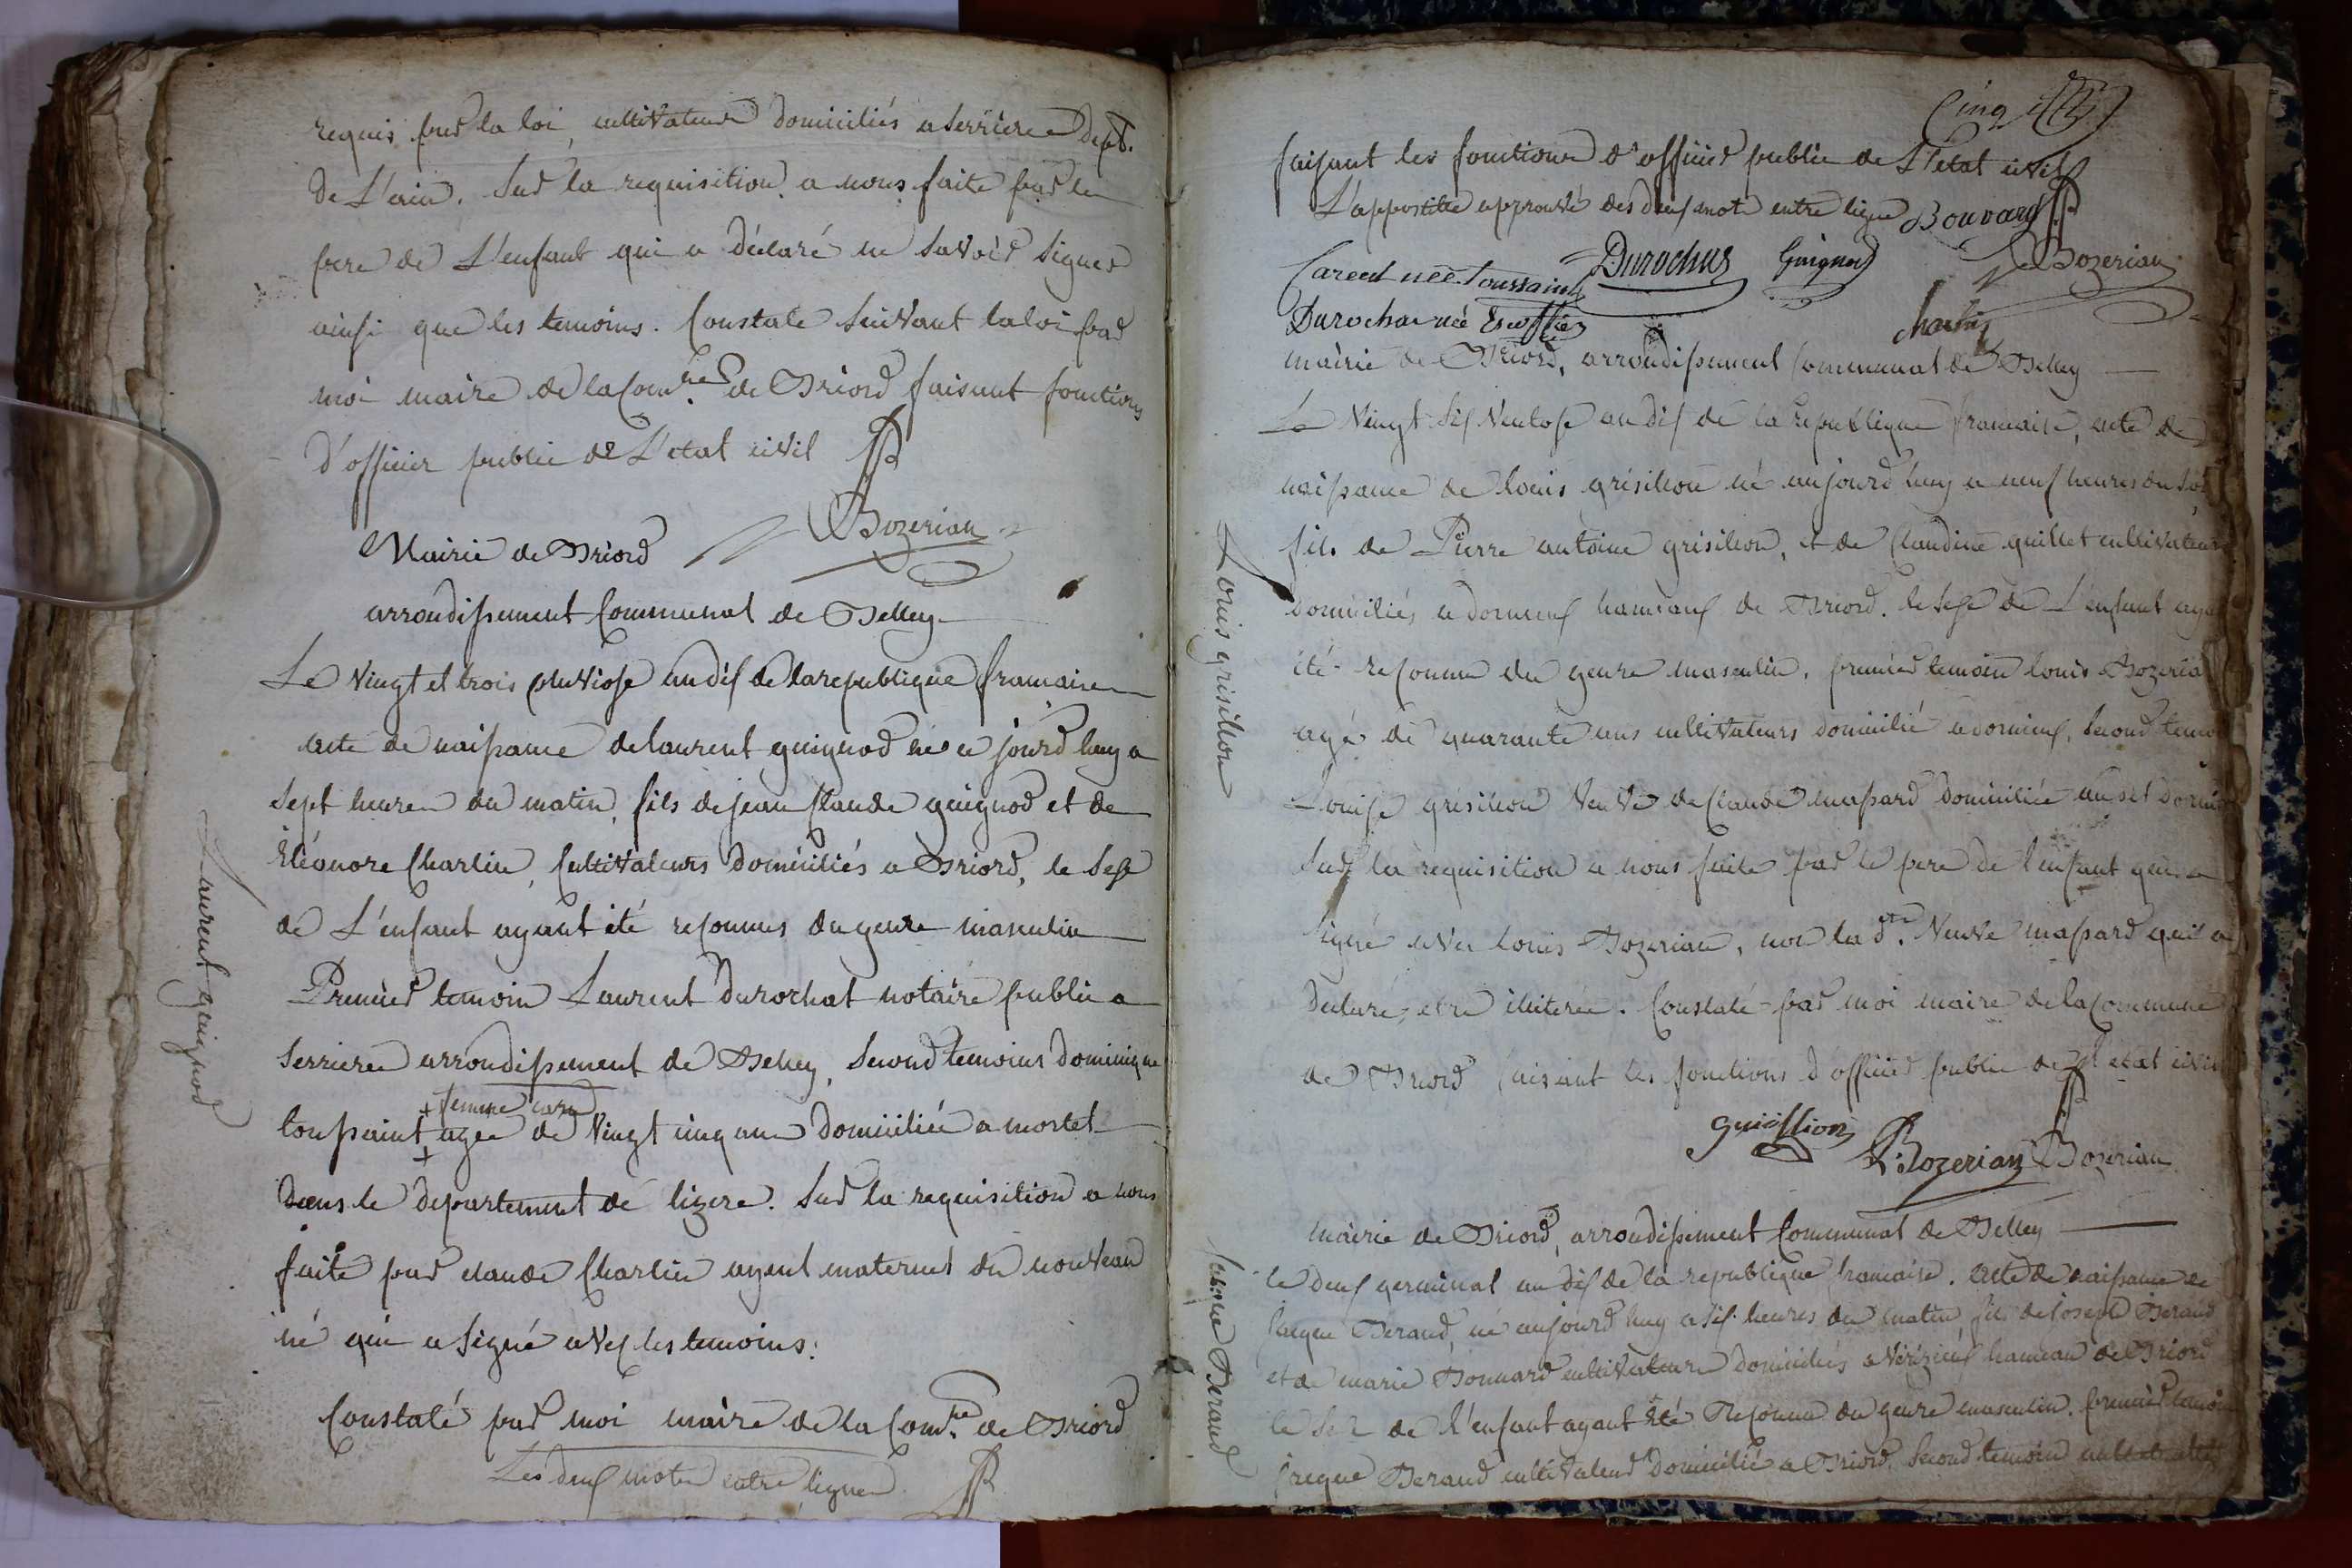 requis par la loi, cultivateurs domiciliés a serriere dept.
de L'ain. Sur la requisition a nous faite par le
pere de L'enfant qui a déclaré ne savoir signer
ainsi que les temoins. Constaté suivant la loi par
moi maire de la Comne de Briord faisant fonctions
d'officier public de L'etat civil
Bozerian
Mairie de Briord
arrondissement Communal de Belley
Le vingt et trois pluviose an dix de la republique francaise
acte de naissance de laurent guignod né ce jourd huy a
sept heures du matin, fils de jean Claude guignod et de
Eléonore Charlin, Cultivateurs domiciliés a Briord, le sexe
de L'enfant ayant été reconnus du genre masculin
Laurent guignod
Premier temoin Laurent Durochat notaire public a
serriere arrondissement de Belley, second temoins dominique
femme
toussaint agee de vingt cinq ans domiciliée a mostel
dans le departement de lizere. Sur la requisition a nous
faite par claude Charlin ayeul maternel du nouveau
né qui a signé avec les temoins.
Constaté par moi maire de la Comne de Briord
Les deux mots entre lignes
Cinq
faisant les fonctions d'officier public de L'etat civil
L'appostille approuvé des deux mots entre ligne Bouvard
Durochat Guignod Bozerian
née Toussaint
Durochat née Escoffier Charlin
mairie de Briord, arrondissement Communal de Belley
Le vingt six ventose an dix de la republique francaise, acte de
naissance de louis grisillon né aujourd huy a neuf heures du soir
fils de Pierre antoine grisillon, et de Claudine quillet cultivateurs
domiciliés a dornieux hameaux de Briord. le sexe de L'enfant aya
Louis grisillon
été reconnu du genre masculin. premier temoin louis Bozeria
agé de quarante ans cultivateurs domicilié a dornieux, second temo
Louise grisillon veuve de Claude massard domiciliée au dit
sur la requisition a nous faite par le pere de l'enfant qui a
signé avec louis Bozerian, non la dte. veuve massard qui a
déclaré etre illiterée. Constaté par moi maire de la commune
de Briord faisant les fonctions d'officier public de l'etat civil
L. Bozerian Bozerian
mairie de Briord, arrondissement Communal de Belley
le deux germinal an dix de la republique francaise. acte de naissance de
Jacque Beraud né aujourd huy a six heures du matin fils de joseph Beraud
Jacque Beraud
et de marie Bonnard cultivateurs domiciliés a vérizieux hameau de Briord
le sexe de l'enfant ayant été Reconnu du genre masculin. premier temoin
jacque Beraud cultivateur domicilié a Briord, second temoin